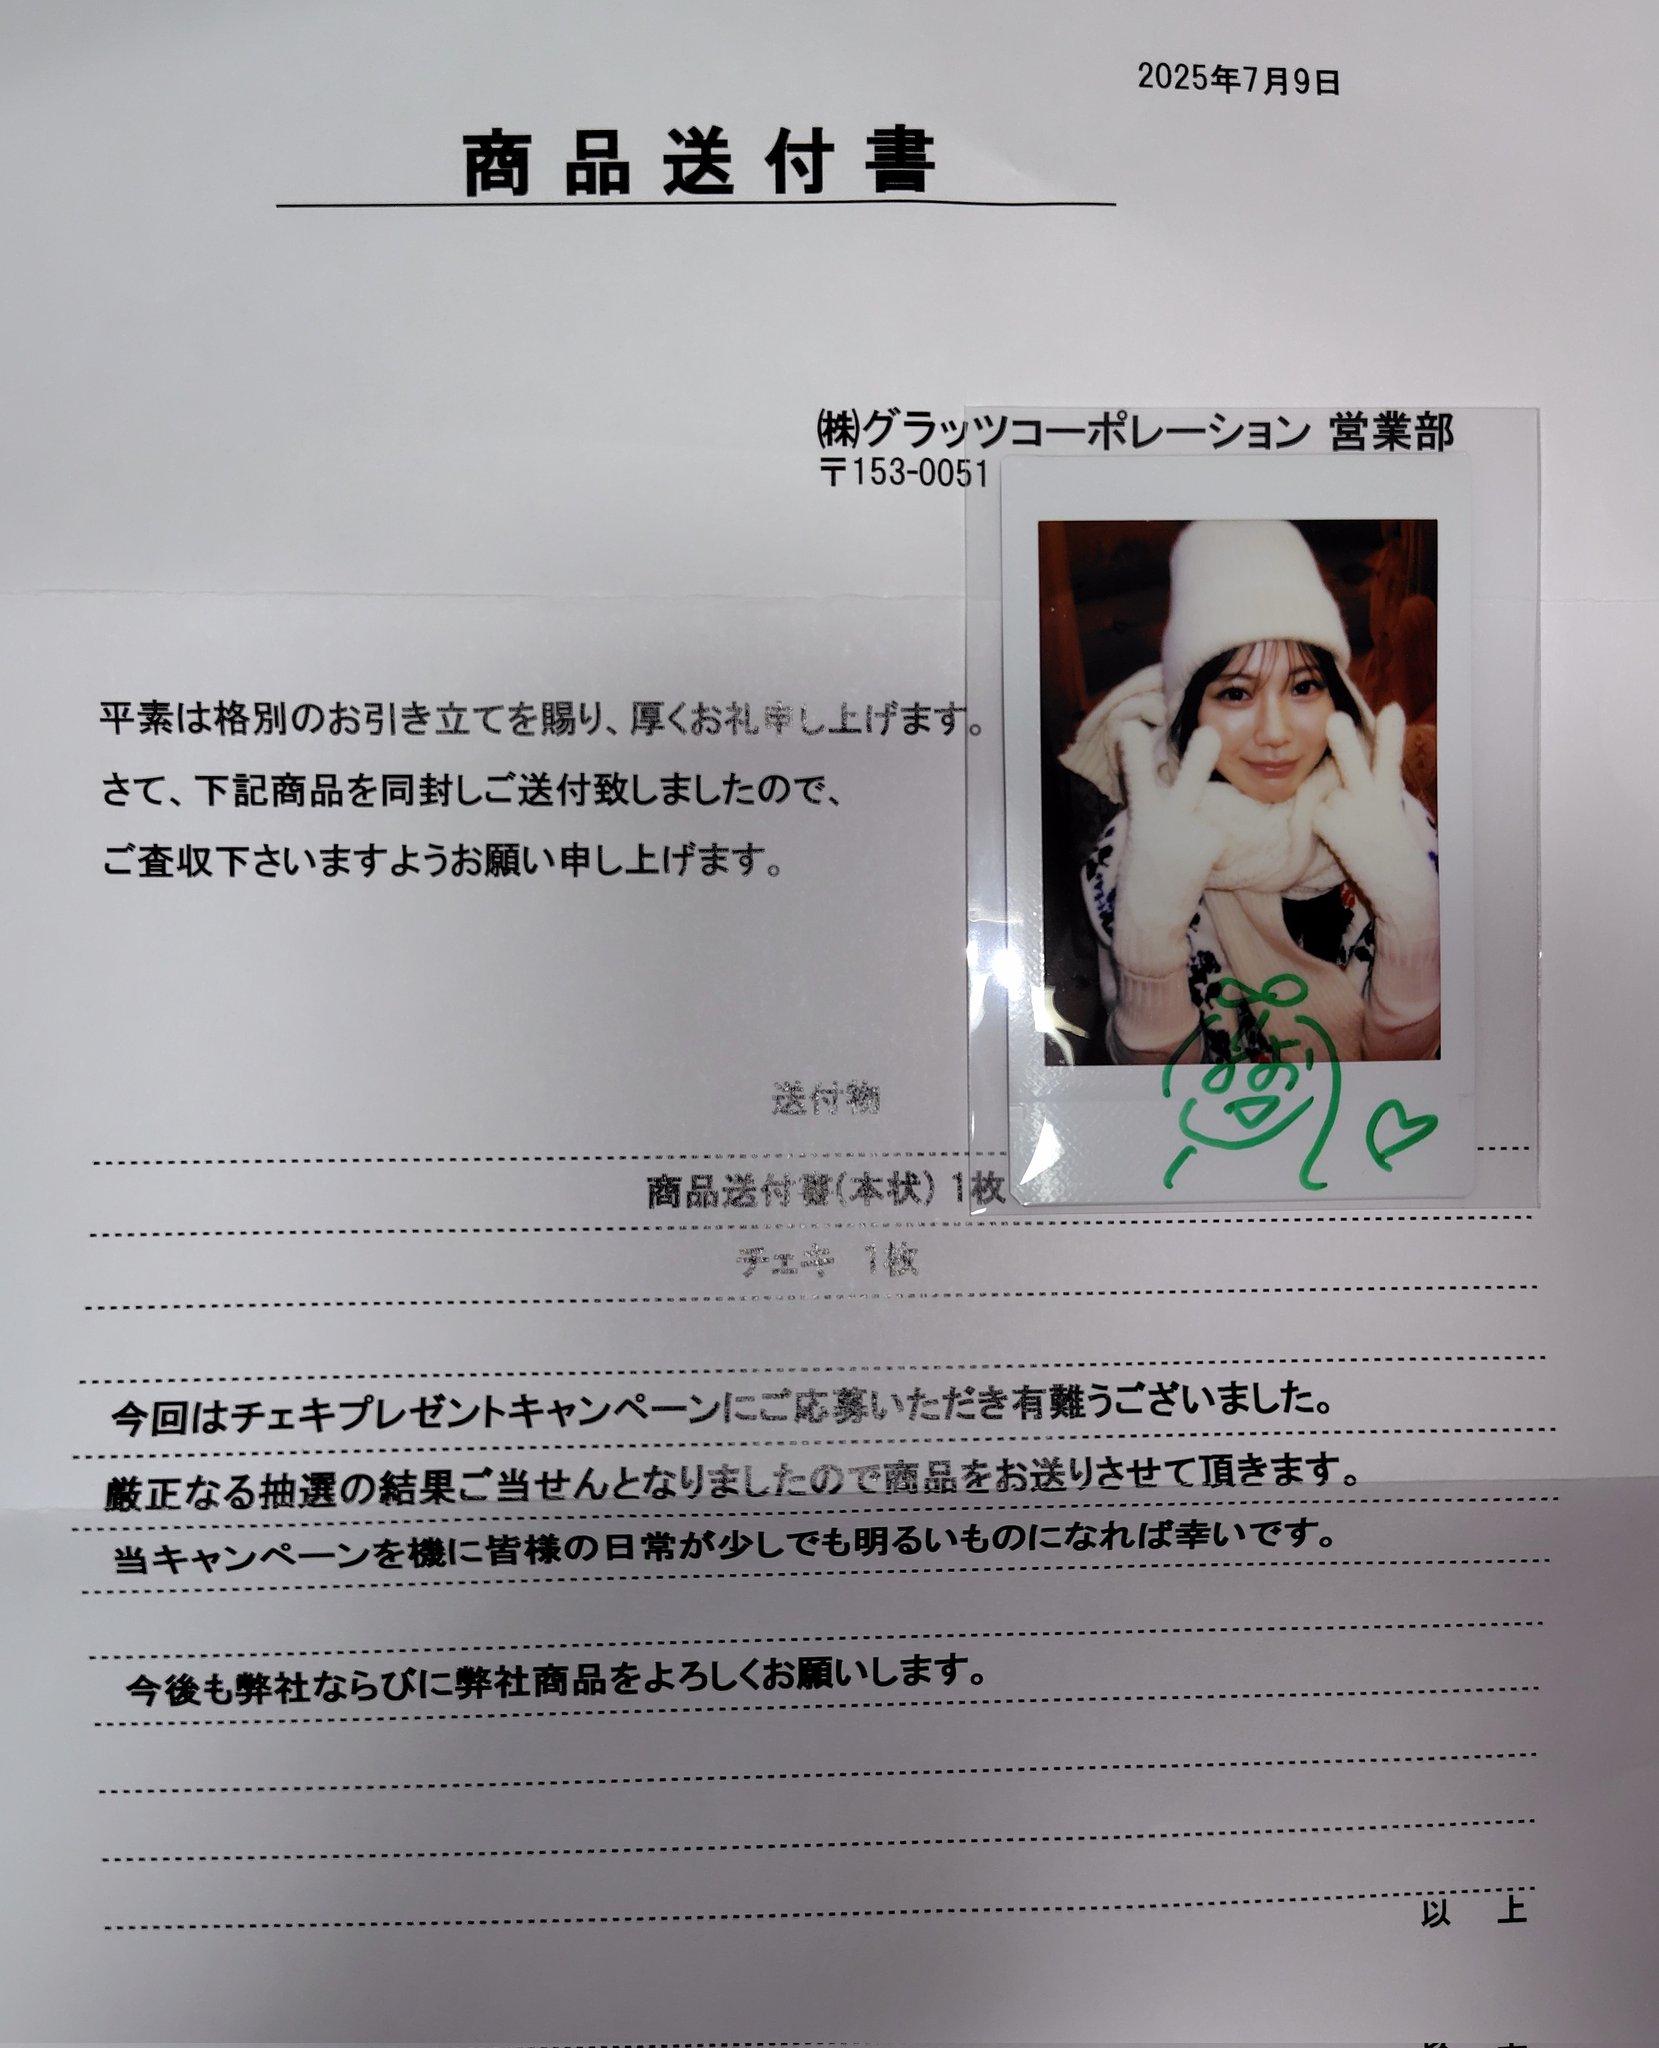 2025年7月9日
商品送付書
㈱グラッツコーポレーション 営業部
〒153-0051
平素は格別のお引き立てを賜り、厚くお礼申し上げます。
さて、下記商品を同封しご送付致しましたので、
ご査収下さいますようお願い申し上げます。
送付物
商品送付書(本状) 1枚
チェキ 1枚
今回はチェキプレゼントキャンペーンにご応募いただき有難うございました。
厳正なる抽選の結果ご当せんとなりましたので商品をお送りさせて頂きます。
当キャンペーンを機に皆様の日常が少しでも明るいものになれば幸いです。
今後も弊社ならびに弊社商品をよろしくお願いします。
以 上